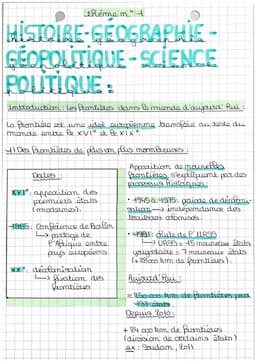 thème n°1
HISTOIRE-GÉOGRAPHIE-
GÉOPOLITIQUE-SCIENCE
POLITIQUE:
Introduction : les frontières dans le monde d'aujourd'hui
La frontière est une idée européenne transférée au reste du
monde entre le XVI° et le XIX°
1) Des frontières de plus en plus nombreuses :
Dates :
XVI° : apparition des
premiers états
(modernes).
1885 : Conférence de Berlin
↳ partage de
l'Afrique entre
pays européens
XX° : décolonisation
↳ fixation des
frontières
Apparition de nouvelles
frontières s'expliquent par des
processus historiques :
• 1945 à 1975 : période de décoloni-
sation → indépendance des
territoires
• 1991 : chute de l'URSS
↳ URSS = 15 nouveaux états
yougoslavie = 7 nouveaux états
frontières).
Aujourd'hui :
km de frontières pour
états
Depuis 2010 :
+ km de frontières
(division de certains états)
ex : Soudan, 2011